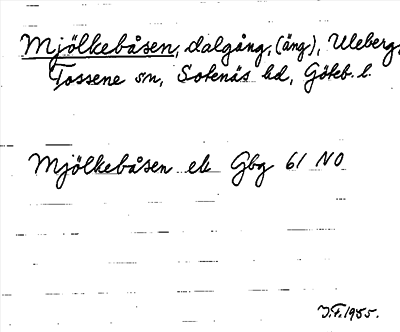 Mjölkebåsen, dalgång, (äng), Uleberg,
Tossene sn, Sotenäs hd, Göteb. l.
Mjölkebåsen ek Gbg 61 NO
J.F. 1955.